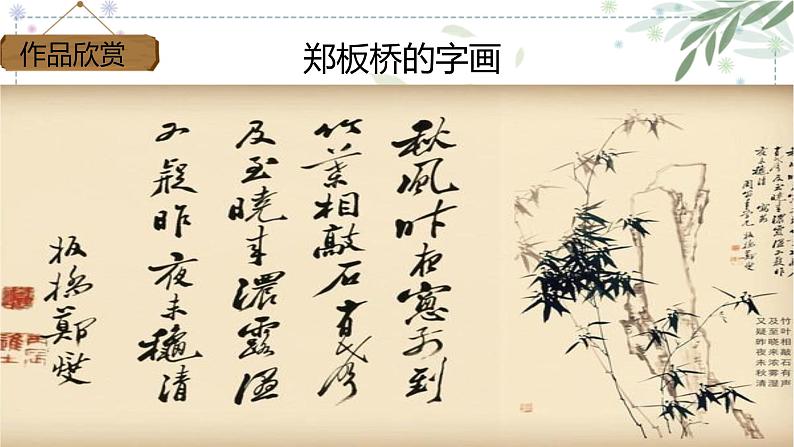 作品欣赏
郑板桥的字画
秋風昨夜窓前到
竹葉相敲石有声
及至曉来濃露湿
又疑昨夜未穐清
板橋鄭燮
竹叶相敲石有声
及至晓来浓雾湿
又疑昨夜未秋清